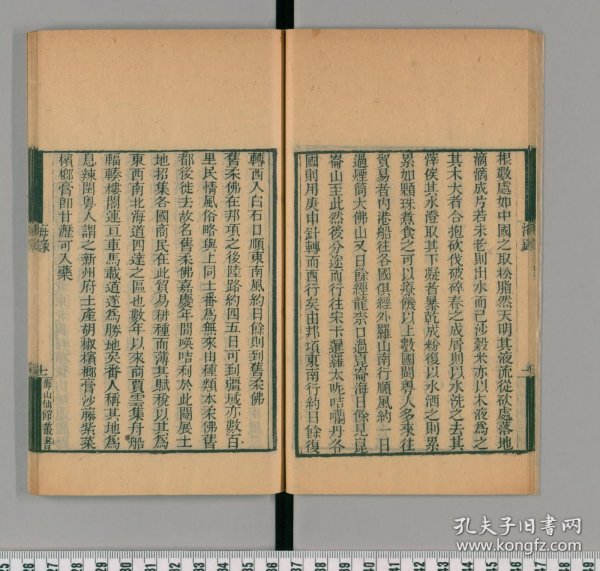 根數處如中國之取松脂然天明其液流從砍處落地
滴滴成片若未老則出水而已莎穀米亦以木液為之
其木大者合抱砍伐破碎舂之成屑則以水洗之去其
滓俟其水澄取其下凝者暴乾成粉復以水洒之則累
累如顆珠煮食之可以療饑以上數國閩粵人多來往
貿易者內港船往各國俱經外羅山南行順風約一日
過煙筒大佛山又日餘經龍柰口過崑崙海日餘見崑
崙山至此然後分途而行往宋卡暹羅太呢咭囒丹各
國則用庚申針轉而西行矣由邦項東南行約日餘復
海錄
轉西入白石口順東南風約日餘則到舊柔佛
舊柔佛在邦項之後陸路約四五日可到疆域亦數百
里民情風俗略與上同土番為無來由種類本柔佛舊
都後徙去故名舊柔佛嘉慶年間𠸄咭利於此闢展土
地招集各國商民在此貿易耕種而薄其賦稅以其為
東西南北海道四達之區也數年以來商賈雲集舟船
輻輳樓閣連亘車馬載道遂為勝地矣番人稱其地為
息辣閩粵人謂之新州府土產胡椒檳榔膏沙藤紫菜
檳榔膏即甘瀝可入藥
海錄
土
海山仙館叢書
孔夫子旧书网
www.kongfz.com
25 26 27 28 29 30 31 32 33 34 35 36 37 38 39 40 41 42 43 44 45 46 47 48 49